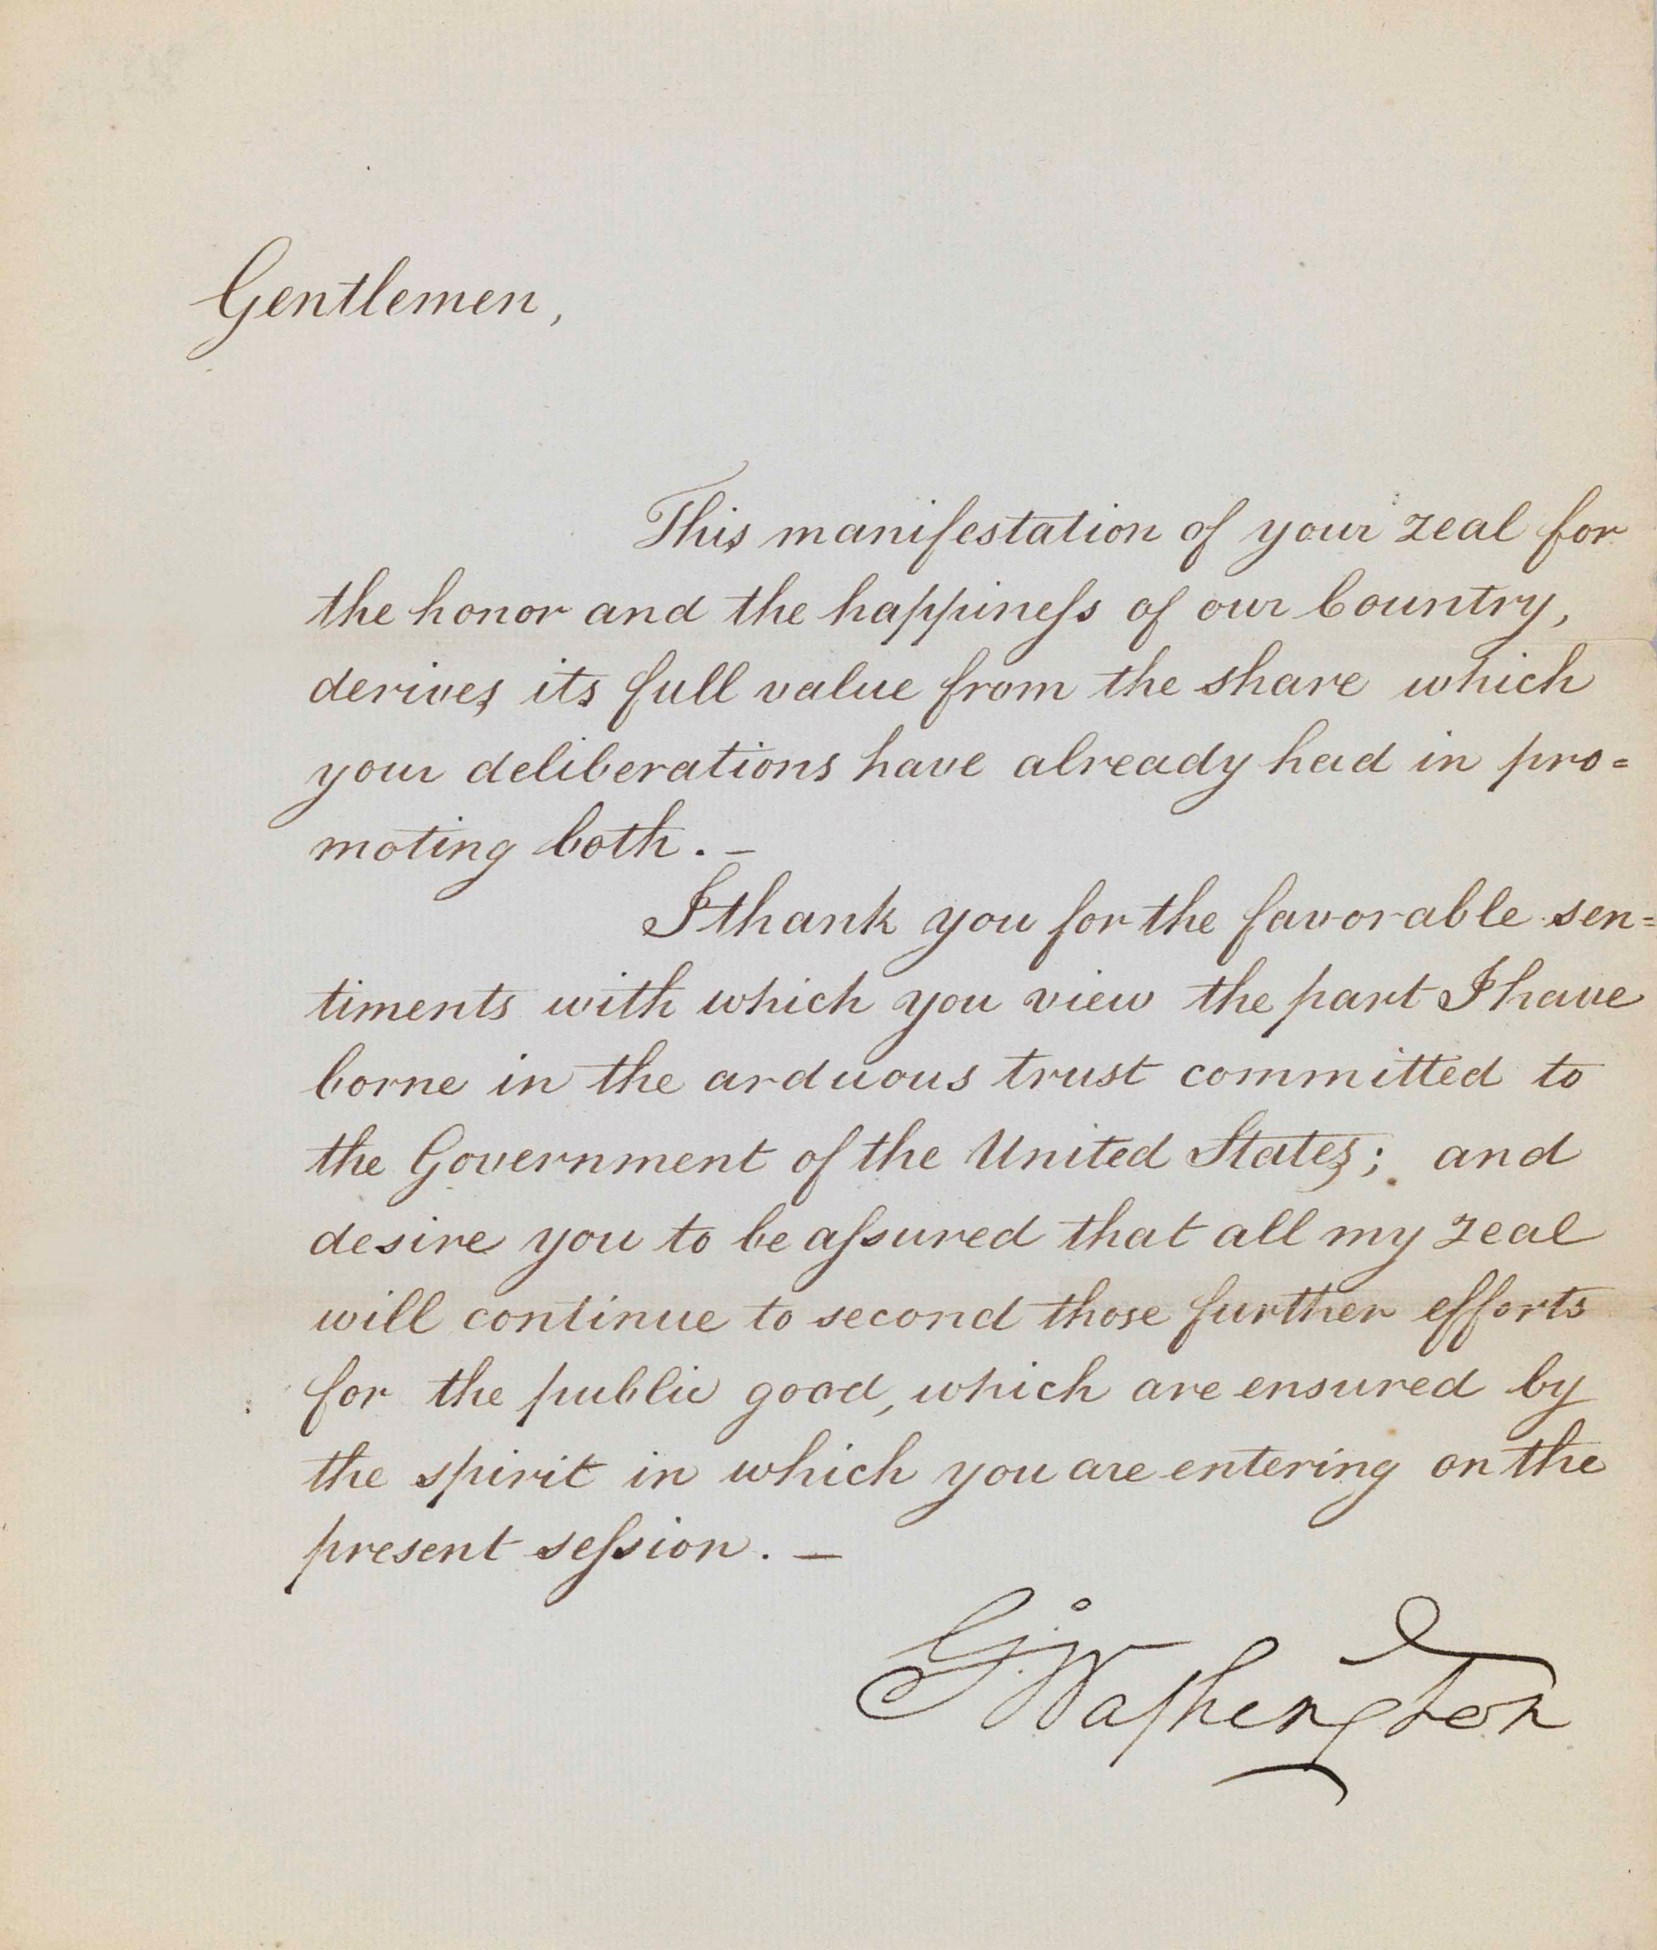 Gentlemen,
This manifestation of your zeal for
the honor and the happineſs of our Country,
derives its full value from the share which
your deliberations have already had in pro=
moting both. —
I thank you for the favorable sen=
timents with which you view the part I have
borne in the arduous trust committed to
the Government of the United States; and
desire you to be aſsured that all my zeal
will continue to second those further efforts
for the public good, which are ensured by
the spirit in which you are entering on the
present seſsion. —
Go: Washington